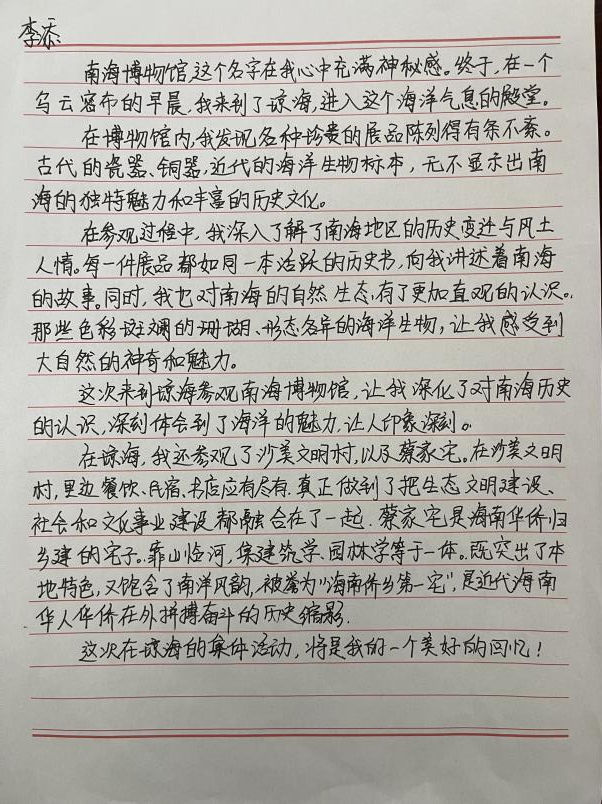 李添
南海博物馆,这个名字在我心中充满神秘感。终于,在一个
乌云密布的早晨,我来到了琼海,进入这个海洋气息的殿堂。
在博物馆内,我发现各种珍贵的展品陈列得有条不紊。
古代的瓷器、铜器,近代的海洋生物标本,无不显示出南
海的独特魅力和丰富的历史文化。
在参观过程中,我深入了解了南海地区的历史变迁与风土
人情。每一件展品都如同一本活跃的历史书,向我讲述着南海
的故事。同时,我也对南海的自然生态,有了更加直观的认识。
那些色彩斑斓的珊瑚、形态各异的海洋生物,让我感受到
大自然的神奇和魅力。
这次来到琼海参观南海博物馆,让我深化了对南海历史
的认识,深刻体会到了海洋的魅力,让人印象深刻。
在琼海,我还参观了沙美文明村,以及蔡家宅。在沙美文明
村,里边餐饮、民宿、书店应有尽有.真正做到了把生态文明建设、
社会和文化事业建设都融合在了一起.蔡家宅是海南华侨归
乡建的宅子.靠山临河,集建筑学、园林学等于一体。既突出了本
地特色,又饱含了南洋风韵,被誉为“海南侨乡第一宅”,是近代海南
华人华侨在外拼搏奋斗的历史缩影.
这次在琼海的集体活动,将是我的一个美好的回忆!